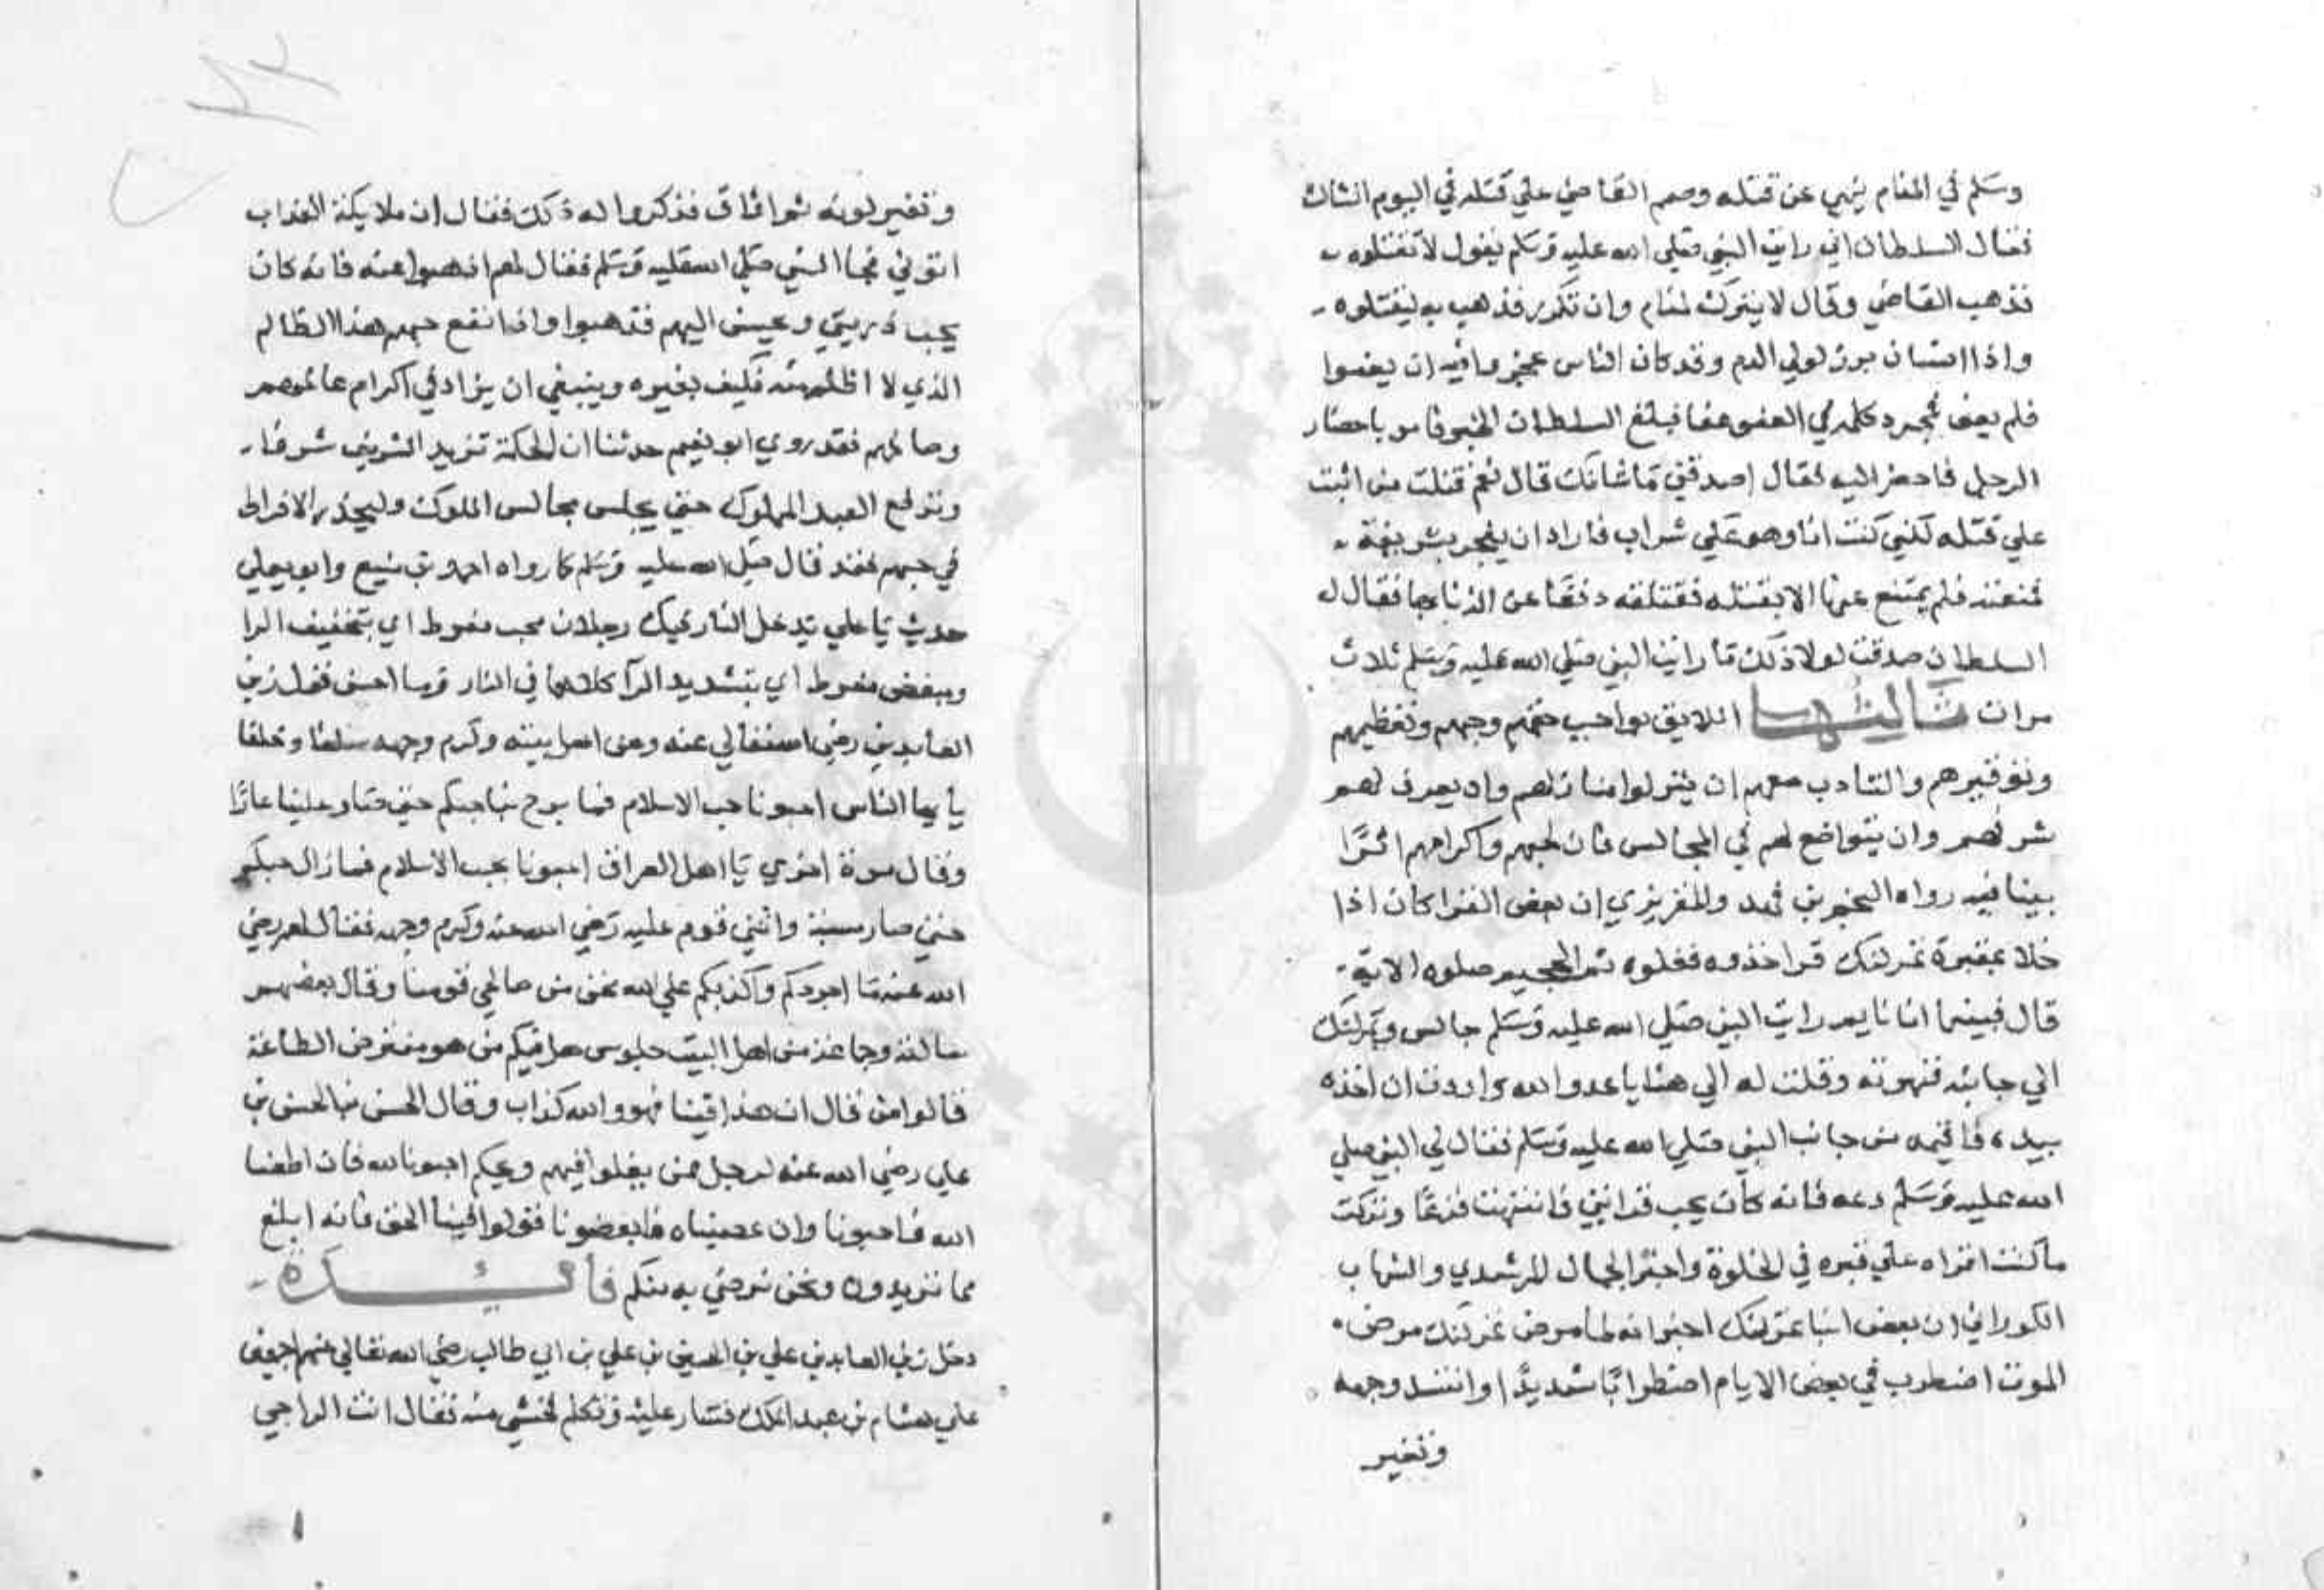 وسلم في المنام ينهي عن قتله وصمم القاضي علي قتله في اليوم الثالث
فقال السلطان اني رايت النبي صلي الله عليه وسلم يقول لا تقتلوه
فذهب القاضي وقال لا يترك لمنام وان تكرر فذهب به ليقتلوه
واذا انسان برز لولي الدم وقد كان الناس عجزوا فيه ان يعفوا
فلم يعف فبمجرد كلمه في العفو عفا فبلغ السلطان الخبر فامر باحضار
الرجل فاحضر اليه فقال اصدقني ما شانك قال نعم قتلت من اثبت
علي قتله لكني كنت انا وهو علي شراب فاراد ان يفجر بشريفة
فمنعته فلم يمتنع عنها الا بقتله فقتلته دفعا عن الزنا بها فقال له
السلطان صدقت لولا ذلك ما رايت النبي صلي الله عليه وسلم ثلاث
مرات ثالثها اللايق بواجب حقهم وحبهم وتعظيمهم
وتوقيرهم والتادب معهم ان ينزلوا منازلهم وان يعرف لهم
شرفهم وان يتواضع لهم في المجالس فان لحبهم واكرامهم اثرا
بينا فيه رواه النجم بن فهد والمقريزي ان بعض القرا كان اذا
خلا بمقبرة تمرلنك قرا خذوه فغلوه ثم الجحيم صلوه الاية
قال فبينما انا نايم رايت النبي صلي الله عليه وسلم جالس وتمرلنك
الي جانبه فنهرته وقلت له الي هنا يا عدوا الله واردت ان اخذه
بيده فاقيمه من جانب النبي صلي الله عليه وسلم فقال لي النبي صلي
الله عليه وسلم دعه فانه كان يحب ذريتي فانتبهت فزعا وتركت
ما كنت اقراه علي قبره في الخلوة واخبر الجمال المرشدي والشهاب
الكوراني ان بعض ابنا تمرلنك اخبر انه لما مرض تمرلنك مرض
الموت اضطرب في بعض الايام اضطرابا شديدا واسود وجهه
وتغير
وتغير لونه ثم افاق فذكروا له ذلك فقال ان ملايكة العذاب
اتوني فجا النبي صلي الله عليه وسلم فقال لهم اذهبوا عنه فانه كان
يحب ذريتي ويحسن اليهم فذهبوا واذا نفع حبهم هذا الظالم
الذي لا اظلم منه فكيف بغيره وينبغي ان يزاد في اكرام عالمهم
وصالحهم فقد روي ابو نعيم حدثنا ان الحكمة تزيد الشريف شرفا
وترفع العبد المملوك حتي يجلس مجالس الملوك وليحذر الافراط
في حبهم فقد قال صلي الله عليه وسلم كما رواه احمد بن منيع وابو يعلي
حديث يا علي يدخل النار فيك رجلان محب مفرط اي بتخفيف الرا
ومبغض مفرط اي بتشديد الرا كلاهما في النار وما احسن قول زين
العابدين رضي الله تعالي عنه وعن اهل بيته وكرم وجهه سلفا وخلفا
يا يها الناس احبونا حب الاسلام فما برح بنا حبكم حتي صار علينا عارا
وقال مرة اخري يا اهل العراق احبونا بحب الاسلام فما زال حبكم
حتي صار سبة واثني قوم عليه رضي الله عنه وكرم وجهه فقال لهم رضي
الله عنه ما اجردكم واكذبكم علي الله نحن من صالحي قومنا وقال بعضهم
سالته وجماعة من اهل البيت جلوس هل فيكم من هو مفترض الطاعة
قالوا من قال ان هذا فينا فهو والله كذاب وقال الحسن بن الحسن بن
علي رضي الله عنه لرجل ممن يغلوا فيهم ويحكم احبونا لله فان اطعنا
الله فاحبونا وان عصيناه فابغضونا قولوا فينا الحق فانه ابلغ
مما تريدون ونحن نرضي به منكم فائدة
دخل زين العابدين علي بن الحسين بن علي بن ابي طالب رضي الله تعالي عنهم اجمعين
علي هشام بن عبد الملك فسار عليه وتكلم فخشي منه فقال انت الراجي